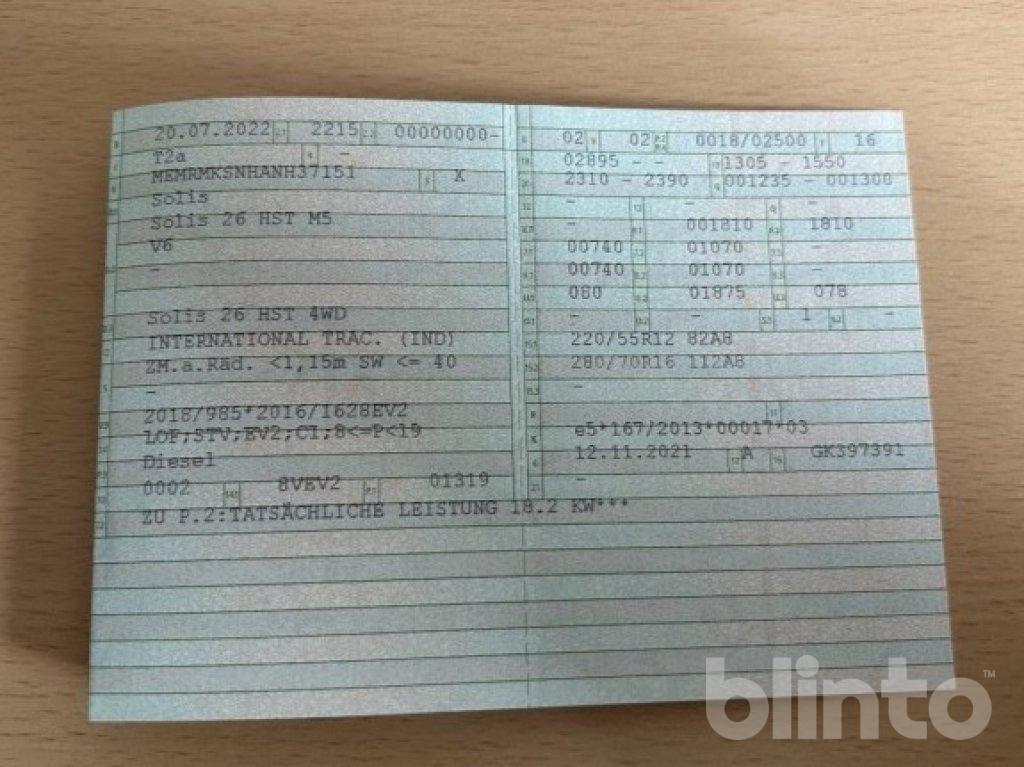 20.07.2022 2215 00000000-
T2a -
MEMRMKSNHANH37151 X
Solis
Solis 26 HST M5
V6
-
Solis 26 HST 4WD
INTERNATIONAL TRAC. (IND)
ZM.a.Räd. <1,15m SW <= 40
-
2018/985*2016/1628EV2
LOF;STV;EV2;CI;8<=P<19
Diesel
0002 8VEV2 01319
ZU P.2:TATSÄCHLICHE LEISTUNG 18.2 KW***
02 02 0018/02500 16
02895 - - 1305 - 1550
2310 - 2390 001235 - 001300
- - -
- 001810 1810
00740 01070 -
00740 01070 -
080 01875 078
- - 1 -
220/55R12 82A8
280/70R16 112A8
-
e5*167/2013*00017*03
12.11.2021 A GK397391
-
blinto™